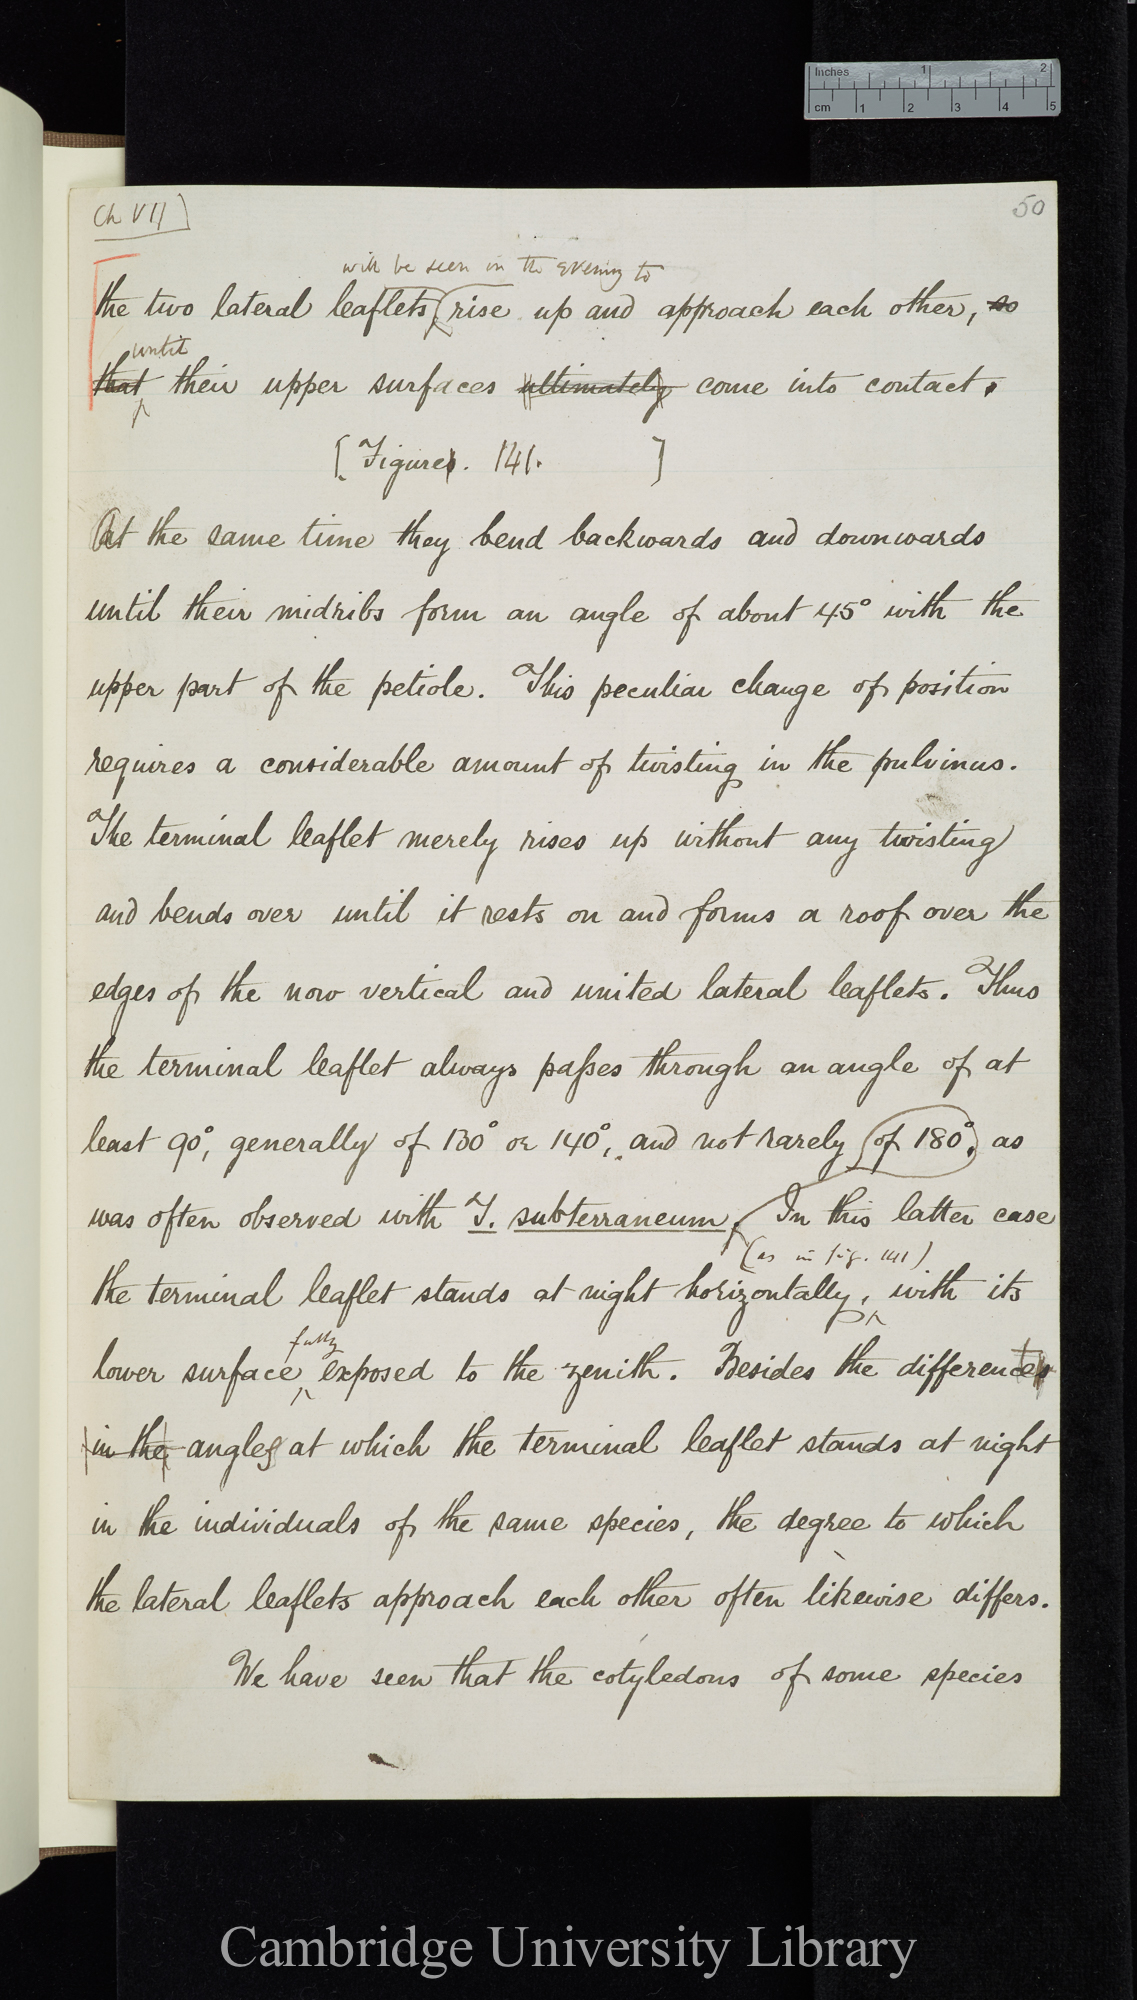 Inches 1 2
cm 1 2 3 4 5
Ch VII]
50
will be seen in the evening to
the two lateral leaflets rise up and approach each other, so
until
that their upper surfaces ultimately come into contact.
[Figure. 141. ]
At the same time they bend backwards and downwards
until their midribs form an angle of about 45° with the
upper part of the petiole. This peculiar change of position
requires a considerable amount of twisting in the pulvinus.
The terminal leaflet merely rises up without any twisting
and bends over until it rests on and forms a roof over the
edges of the now vertical and united lateral leaflets. Thus
the terminal leaflet always passes through an angle of at
least 90°, generally of 130° or 140°, and not rarely of 180°, as
was often observed with T. subterraneum. In this latter case
(as in fig. 141)
the terminal leaflet stands at night horizontally, with its
fully
lower surface exposed to the zenith. Besides the different
in the angles at which the terminal leaflet stands at night
in the individuals of the same species, the degree to which
the lateral leaflets approach each other often likewise differs.
We have seen that the cotyledons of some species
Cambridge University Library